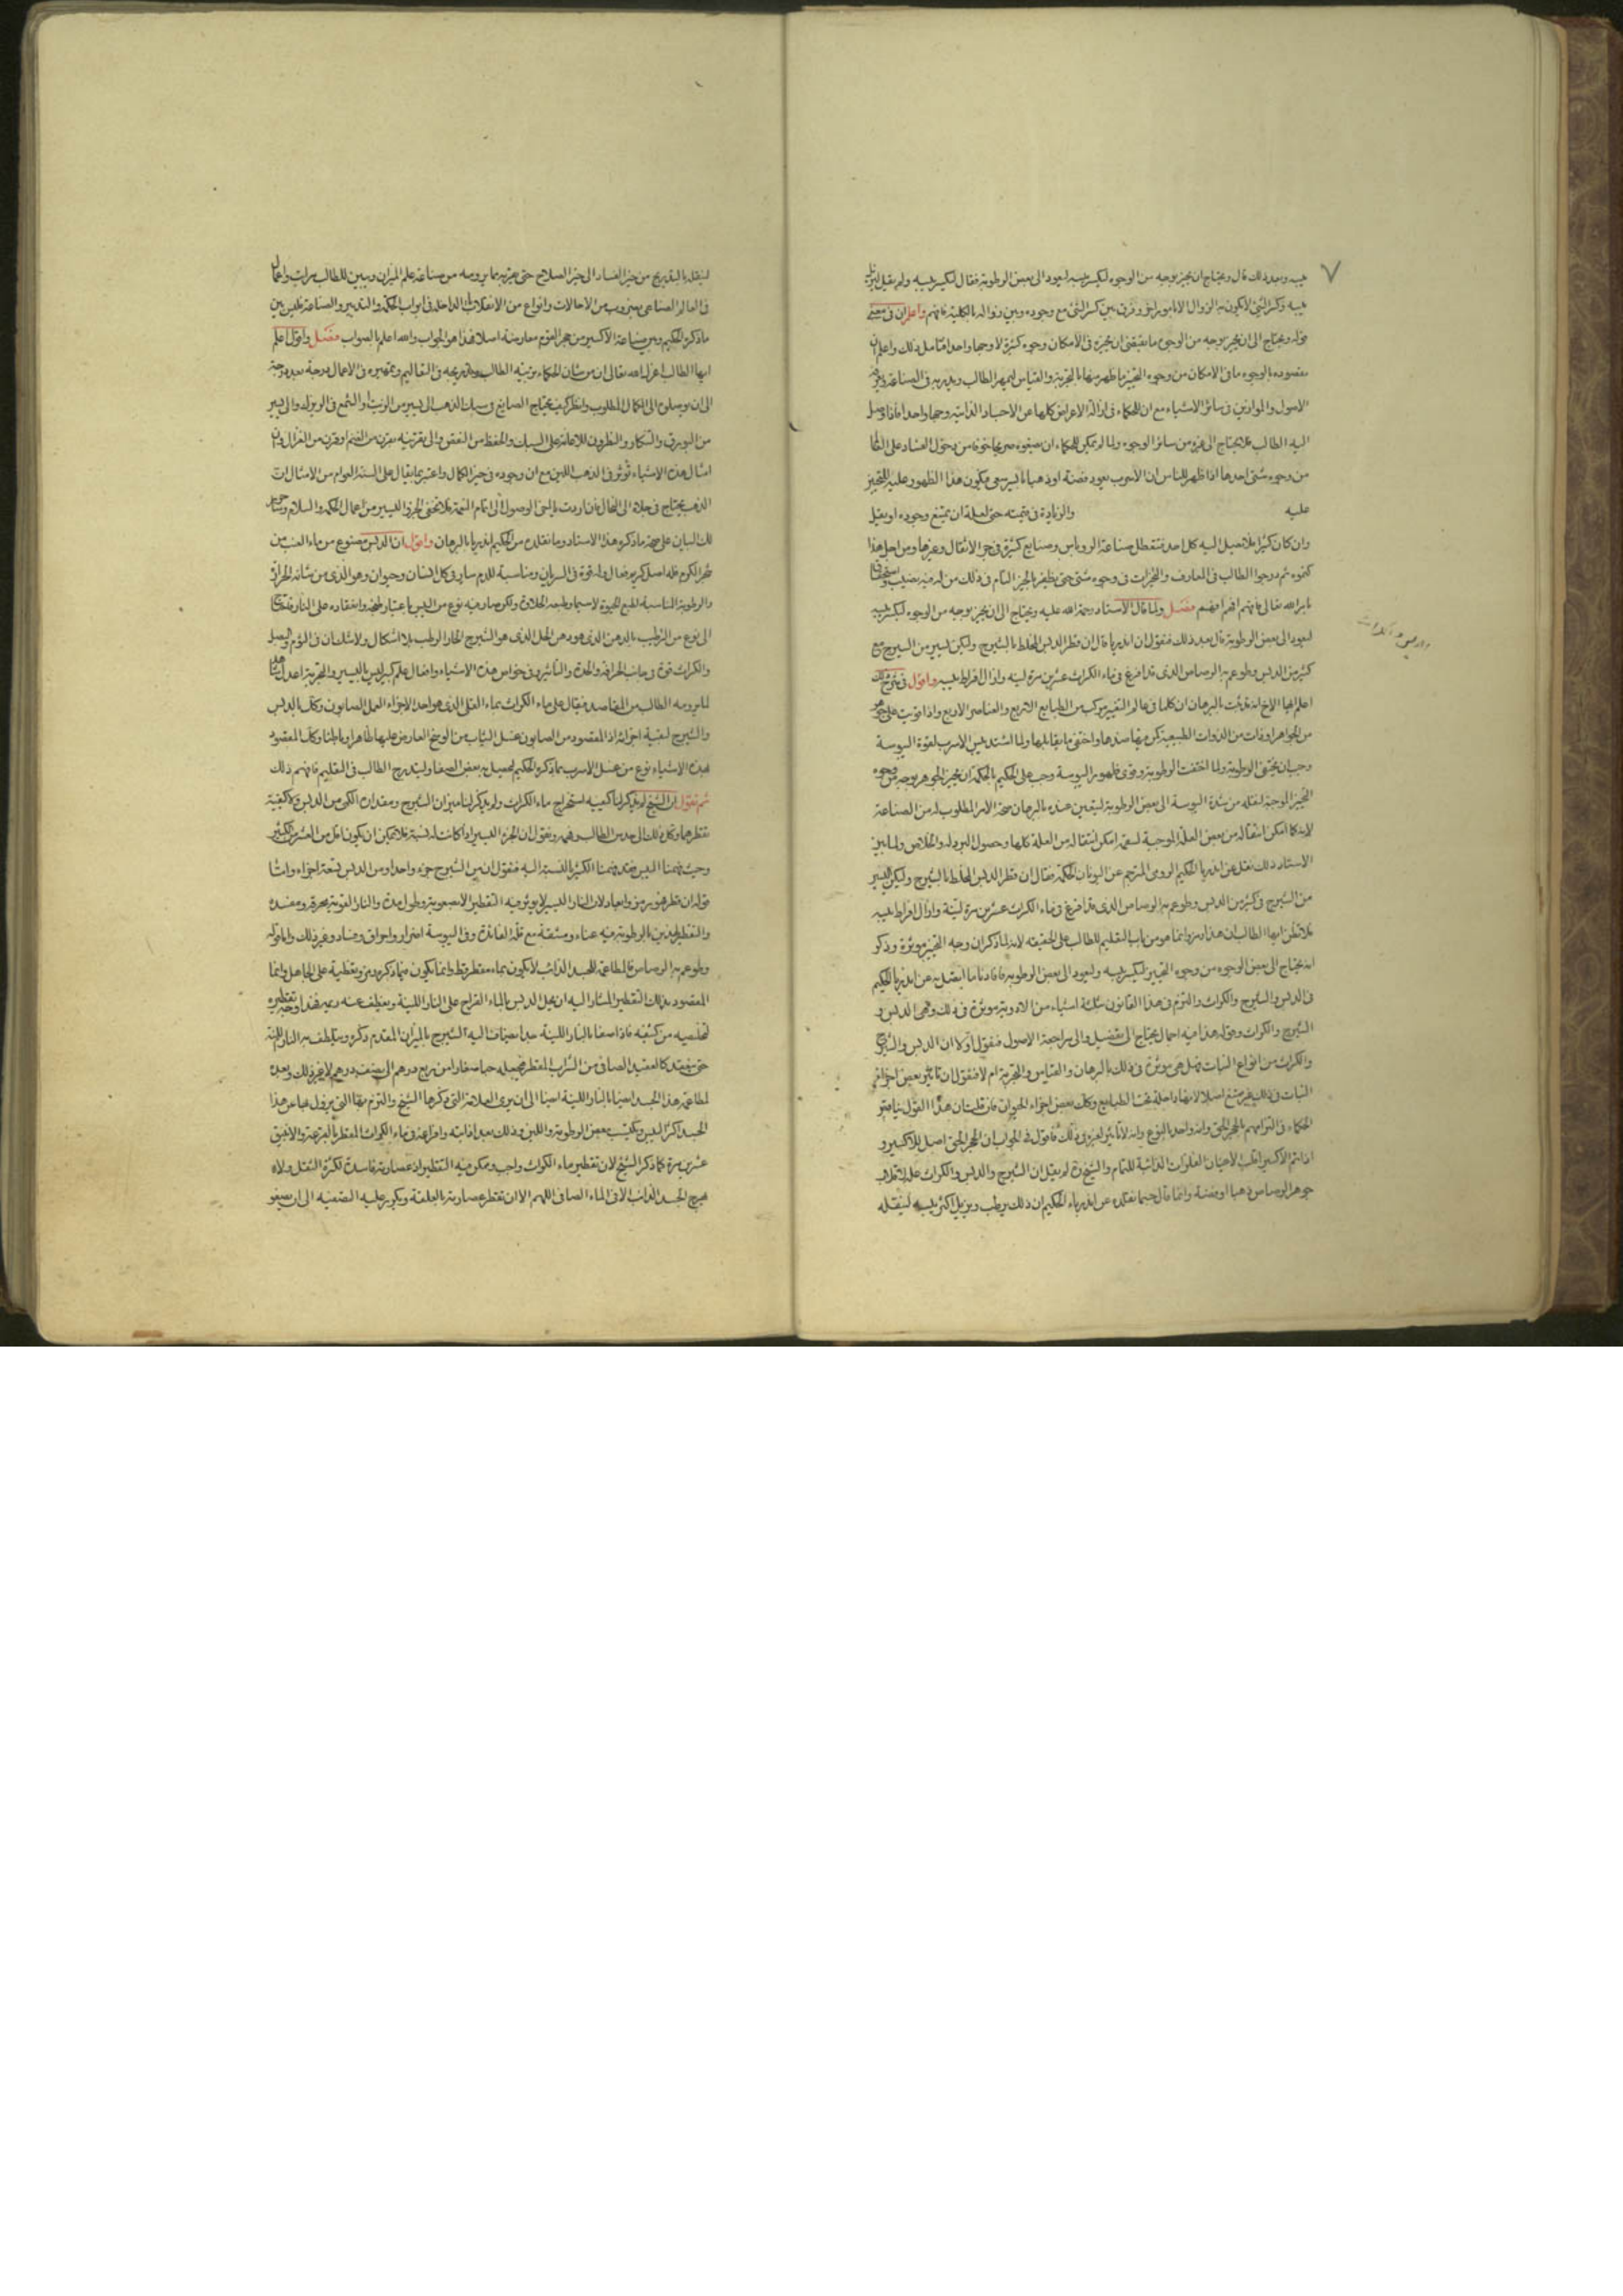 ٧
يبسه وبعد ذلك قال ويحتاج ان يجيز بوجه من الوجوه ليكسر يبسه ليعود الى بعض الرطوبة فقال ليكسر يبسه ولم يقل ليزيله
يبسه وكسر الشئ لا يكون به الزوال الا بامور اخر وفرق بين كسر الشئ مع وجوده وبين زواله بالكلية فافهم واعلم ان فى معنى
قوله ويحتاج الى ان يجيز بوجه من الوجوه ما يقتضى ان يجيزه فى الامكان وجوه كثيرة لا وجها واحدا فتامل ذلك واعلم ان
مقصوده بالوجوه ما فى الامكان من وجوه التجيز ما ظهر منها بالتجربة والقياس ليمهر الطالب ويتدرب فى الصناعة
الاصول والموازين فى سائر الاشياء مع ان الحكماء فى ازالة الاعراض كلها عن الاجساد الذائبة وجها واحدا فاذا وصل
اليه الطالب فلا يحتاج الى غيره من سائر الوجوه ولما لم يمكن للحكماء ان يضعوه صريحا خوفا من دخول الفساد على العالم
من وجوه شتى احدها اذا ظهر للناس ان الاسرب يعود فضة او ذهبا باليسر سعى فيكون هذا الظهور عليه
عليه والزيادة فى قيمته حتى لعله ان يمتنع وجوده او يقل
وان كان كثيرا فلا تصل اليه كل احد فتتعطل صناعة الروباس وصنايع كثيرة فى جر الاثقال وغيرها ومن اجل هذا
كتموه ثم درجوا الطالب فى المعارف والتجزات فى وجوه شتى حتى يظفر بالجيز التام فى ذلك من له فيه نصيب واستحقاق
بامر الله تعالى فافهم افهم افهم فصل ولما قال الاستاد رحمة الله عليه ويحتاج الى ان يجيز بوجه من الوجوه ليكسر يبسه
ليعود الى بعض الرطوبة قال بعد ذلك فنقول ان اندريا قال ان قطر الدبس المخلط بالشيرج وليكن يسير من الشيرج مع
كثير من الدبس وطوعم به الرصاص الذى قد افرغ فى ماء الكراث عشرين مرة لينه وازال افراط يبسه واقول فى شرح ذلك
اعلم ايها الاخ انه قد ثبت بالبرهان ان كلما فى عالم التغيير مركب من الطبايع الاربع والعناصر الاربع واذا قويت على جوهر
من الجواهر او ذات من الذوات الطبيعية كن فيها ضدها واختفى ما يقابلها ولما اشتد يبس الاسرب لقوة اليبوسة
وجب ان تختفى الرطوبة ولما اختفت الرطوبة وقوى ظهور اليبوسة وجب على الحكيم بالحكمة ان يجيز الجوهر بوجه من وجوه
التجيز الموجبة لنقله من شدة اليبوسة الى بعض الرطوبة ليتعين عنده بالبرهان صحة الامر المطلوب له من الصناعة
لانه كلما امكن انتقاله من بعض العلة الموجبة لسقمه امكن انتقاله من العلة كلها وحصول البرء له والخلاص ولما بين
الاستاد ذلك نقل عن اندريا الحكيم الرومى المترجم عن اليونان الحكمة فقال ان قطر الدبس المخلط بالشيرج وليكن اليسير
من الشيرج فى كثير من الدبس وطوعم به الرصاص الذى قد افرغ فى ماء الكراث عشرين مرة لينه وازال افراط يبسه
فلا تظن ايها الطالب ان هذا رمز وانما هو من باب التعليم للطالب على الحقيقه لانه لما ذكر ان وجه التجيز موثرة وذكر
انه يحتاج الى بعض الوجوه من وجوه التجيز ليكسر يبسه وليعود الى بعض الرطوبة فافادنا ما اتصل به عن اندريا الحكيم
فى الدبس والشيرج والكراث والتزم فى هذا القانون بثلثة اشياء من الادوية موثرة فى ذلك وهى الدبس و
الشيرج والكراث وقوله هذا فيه اجمال يحتاج الى تفصيل والى مراجعة الاصول فنقول اولا ان الدبس والشيرج
والكراث من انواع النبات فهل هى موثرة فى ذلك بالبرهان والقياس والتجربة ام لا فنقول ان تاثير بعض اجزاء
النبات فى ذلك غير ممتنع اصلا لانها داخلة تحت الطبايع وكل بعض اجزاء الحيوان فان قلت ان هذا القول يناقض
الحكماء فى التزامهم بالحجر الحق وانه واحد بالنوع وانه لا تاثير لغيره فى ذلك فاقول فى الجواب ان الحجر الحق اصل للاكسير و
اذا تم الاكسير اقلب الاعيان الفلزات الذائبة للتمام والشيخ لم يقل ان الشيرج والدبس والكراث على انفراد
جوهر الرصاص ذهبا او فضة وانما قال حيما نقله عن اندرياء الحكيم ان ذلك يرطب ويزيل اكثر يبسه لينقله
لينقله بالتدريج من حيز الفساد الى حيز الصلاح حتى يقربه بما يرومه من صناعة علم الميزان ويبين للطالب مراتب واعمال
فى العالم الصناعى بضروب من الاحالات وانواع من الانقلابات الداخلة فى ابواب الحكمة والتدبير والصناعة فليس بين
ما ذكره الحكيم وبين صناعة الاكسير من حجر القوم معارضة اصلا فهذا هو الجواب والله اعلم بالصواب فصل واقول اعلم
ايها الطالب اعزك الله تعالى ان من شان الحكماء تربية الطالب وتدريجه فى التعاليم وتمهيره فى الاعمال درجة بعد درجة
الى ان يوصلوه الى الكمال المطلوب وانظر كيف يحتاج الصايغ فى سبك الذهب الى يسير من الزيت او الشمع فى البروز والى يسير
من البورق والتنكار والنطرون للاعانة على السبك والحفظ من النقص والى تقرينه بقرن من الغنم او قرن من الغزال وان
امثال هذه الاشياء تؤثر فى الذهب اللين مع ان وجوده فى حيز الكمال واعتبر بما يقال على السنة العوام من الامثال ان
الذهب يحتاج فى جلاه الى النخال فان اردت بالبنى الوصول الى اتمام النعمة فلا تحقر الجزء اليسير من اعمال الحكمة والسلام
لك البيان على صحة ما ذكره هذا الاستاد وما نقله من الحكيم اندريا بالبرهان واقول ان الدبس مصنوع من ماء العنب من
شجر الكرم فله اصل كريم فعال وله قوة فى السريان ومناسبة للدم سار فى كل انسان وحيوان وهو الذى من شانه الحرارة
والرطوبة المناسبة لطبع الحيوة لا سيما وطبعه الحلاوة ولكن صار فيه نوع من اليبس باعتبار طبخه وانعقاده على النار فيحتاج
الى نوع من الترطيب بالدهن الذى هو دهن الحل الذى هو الشيرج الحار الرطب بلا اشكال ولا شك ان فى الثوم والبصل
والكراث قوة فى جانب الحرافة والحدة والتاثير وفى خواص هذه الاشياء وافعال علم كبير ليس باليسير والتجربة اعدل شاهد
لما يرومه الطالب من المقاصد فيقال على ماء الكراث بماء القلى الذى هو احد الاجزاء لعمل الصابون وكل بالدبس
والشيرج لبقية اجزائه اذ المقصود من الصابون غسل الثياب من الوسخ العارض عليها ظاهرا وباطنا وكل المقصود
بهذه الاشياء نوع من غسل الاسرب بما ذكره الحكيم ليحصل به بعض الصفا وليتدرج الطالب فى التعليم فافهم ذلك
ثم نقول ان الشيخ لم يذكر لنا كيفيه استخراج ماء الكراث ولم يذكر لنا ميزان الشيرج ومقداره الكمى من الدبس ولا كيفية
تقطيرها وكل ذلك الى حدس الطالب وفهمه ونقول ان الجزء اليسير اذا كانت له نسبة فلا يمكن ان يكون اقل من العشر من الكثير
وحيث فهمنا اليسير فقد فهمنا الكثير بالنسبة اليه فنقول ان من الشيرج جزء واحدا ومن الدبس تسعة اجزاء وامّا
قوله ان قطر فهو رمز وابعاد لان النار اليسيرة لا يوثر فيه التقطير الا بصعوبة وطول مدة والنار القوية محرقة ومفسدة
والتقطير الذى بالرطوبة فيه عناء ومشقة مع قلة الفائدة وفى اليبوسة اضرار واحراق وفساد وغير ذلك واما قوله
وطوعم به الرصاص فالمطاعمة للجسد الذائب لا تكون بماء مقطر قط وانما يكون فيما ذكره رمز وتغطية على الجاهل وانما
المقصود بذلك التقطير المشار اليه ان يحل الدبس بالماء القراح على النار اللينة ويقطف عنه ريمه فهذا وجه تقطيره
لتخلصه من كثيفه فاذا صفا بالنار اللينة جدا يضاف اليه الشيرج بالميزان المقدم ذكره ويتلطف به النار اللينة
حتى ينعقد كالعقيد الصافى من الشراب المقطر فيجعله حبا صغارا من ربع درهم الى نصف درهم لا غير ذلك وبعده
لمطاعمة هذا الجسد اجزاء بالنار اللينة احيانا الى ان يرى العلامة التى ذكرها الشيخ والتزم بها التى يزول بها عن هذا
الجسد اكثر اليبس ويكتسب بعض الرطوبة واللين وذلك بعد اذابته وافراغه فى ماء الكراث المقطر بالقرعة والانبيق
عشرين مرة كما ذكر الشيخ لان تقطير ماء الكراث واجب وممكن فيه التقطير اذ عصارته فاسدة لكثرة الثفل ولانه
الجسد الذائب الا فى الماء الصافى اللهم الا ان تقطر عصارته بالعلقة ويكرر عليه التصفيه الى ان يصفو